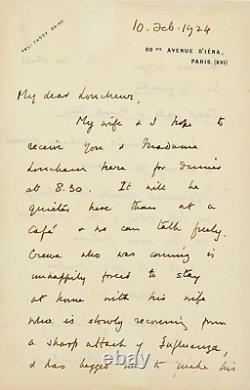 TÉLÉ: PASSY 95-50
10. Feb. 1924
60 TER AVENUE D'IÉNA,
PARIS. (XVI)
My dear Loucheur,
My wife & I hope to
receive You & Madame
Loucheur here for dinner
at 8.30. It will be
quieter here than at a
Café & we can talk freely.
Crewe who was coming is
unhappily forced to stay
at home with his wife
who is slowly recovering from
a sharp attack of Influenza,
& has begged me to make his